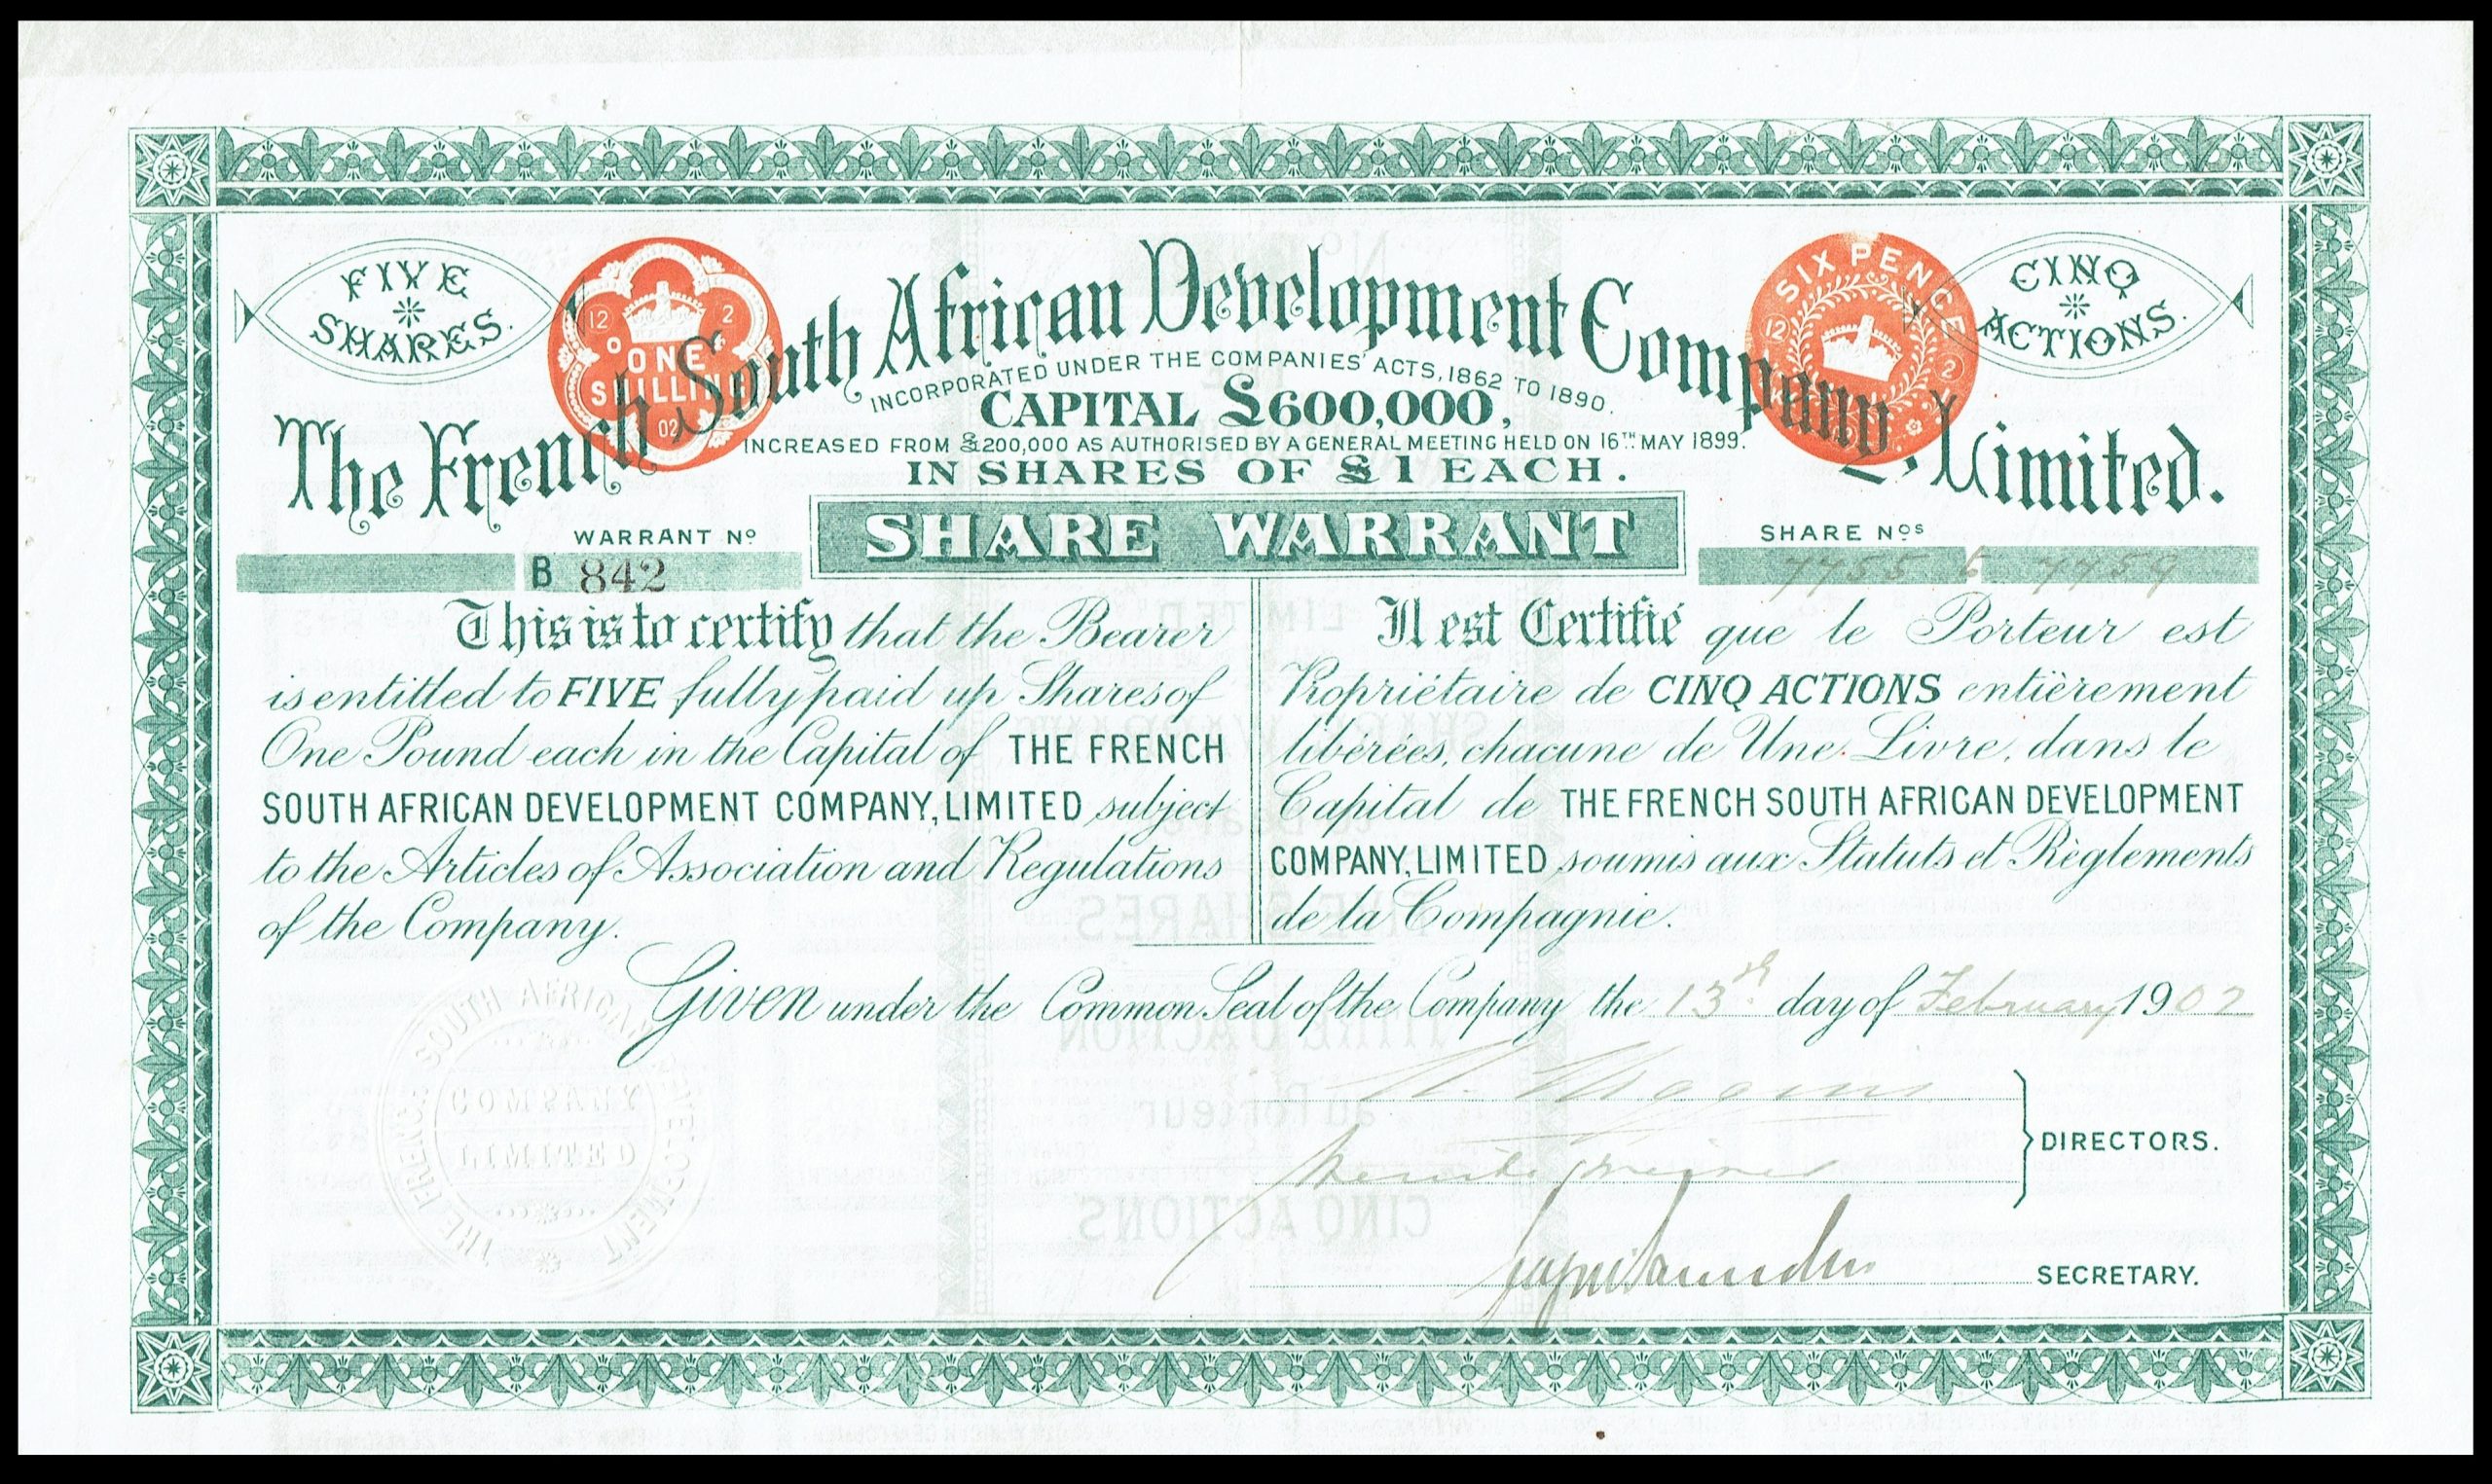 FIVE
SHARES.
12 2
ONE
SHILLING
02
SIX PENCE
12 2
CINQ
ACTIONS.
The French South African Development Company, Limited.
INCORPORATED UNDER THE COMPANIES' ACTS, 1862 TO 1890.
CAPITAL £600,000,
INCREASED FROM £200,000 AS AUTHORISED BY A GENERAL MEETING HELD ON 16TH MAY 1899.
IN SHARES OF £1 EACH.
WARRANT No
B 842
SHARE WARRANT
SHARE Nos
7755 to 7759
This is to certify that the Bearer
is entitled to FIVE fully paid up Shares of
One Pound each in the Capital of THE FRENCH
SOUTH AFRICAN DEVELOPMENT COMPANY, LIMITED subject
to the Articles of Association and Regulations
of the Company.
Il est Certifié que le Porteur est
Propriétaire de CINQ ACTIONS entièrement
libérées, chacune de Une Livre, dans le
Capital de THE FRENCH SOUTH AFRICAN DEVELOPMENT
COMPANY, LIMITED soumis aux Statuts et Règlements
de la Compagnie.
Given under the Common Seal of the Company the 13th day of February 1902
THE FRENCH SOUTH AFRICAN DEVELOPMENT
COMPANY
LIMITED
DIRECTORS.
SECRETARY.